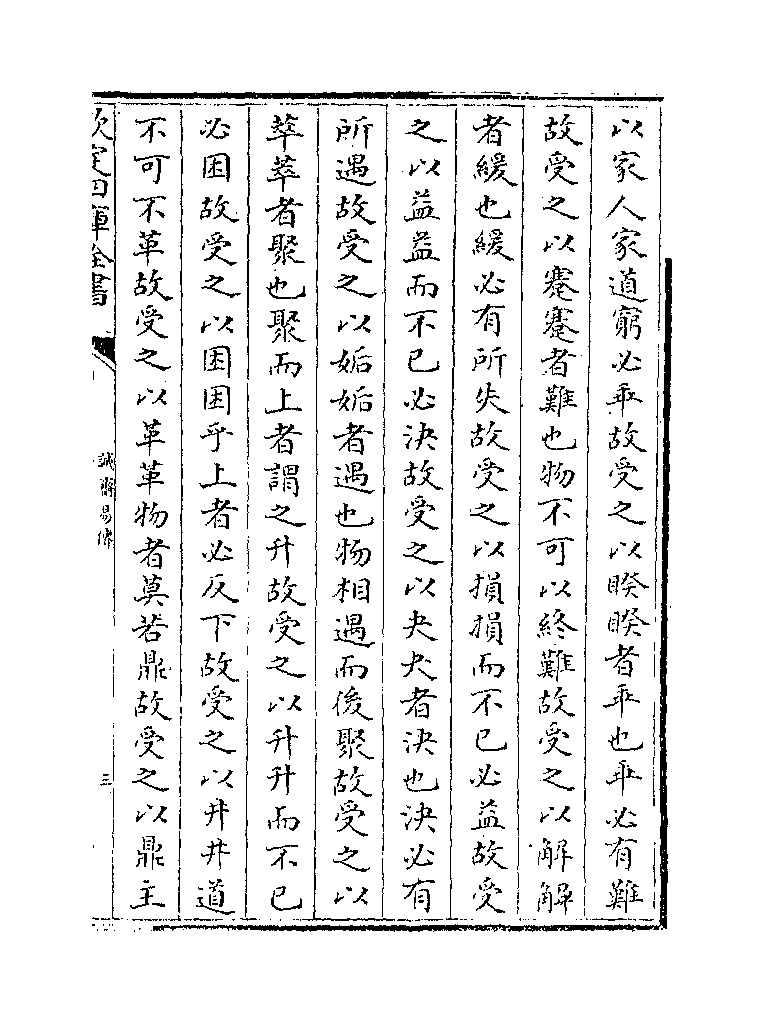 以家人家道窮必乖故受之以睽睽者乖也乖必有難
故受之以蹇蹇者難也物不可以終難故受之以解解
者緩也緩必有所失故受之以損損而不已必益故受
之以益益而不已必決故受之以夬夬者決也決必有
所遇故受之以姤姤者遇也物相遇而後聚故受之以
萃萃者聚也聚而上者謂之升故受之以升升而不已
必困故受之以困困乎上者必反下故受之以井井道
不可不革故受之以革革物者莫若鼎故受之以鼎主
欽定四庫全書
誠齋易傳
三